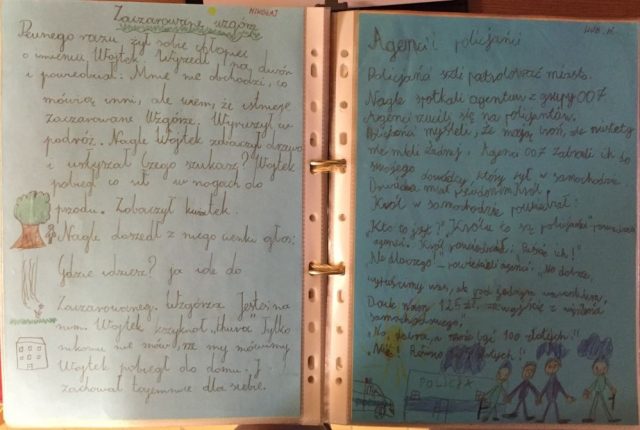 MIKOŁAJ
Zaczarowane wzgórze
Pewnego razu żył sobie chłopiec
o imieniu Wojtek. Wyszedł na dwór
i powiedział: Mnie nie obchodzi, co
mówią inni, ale wiem, że istnieje
zaczarowane Wzgórze. Wyruszył w
podróż. Nagle Wojtek zobaczył drzewo
i usłyszał czego szukasz? Wojtek
pobiegł co sił w nogach do
przodu. Zobaczył
Nagle doszedł z niego cienki głos:
Gdzie idziesz? ja idę do
Zaczarowanego Wzgórza. Jesteś na
nim! Wojtek krzyknął, Hura! Tylko
nikomu nie mów, że my mówimy
Wojtek pobiegł do domu. I
zachował tajemnicę dla siebie.
Agenci i policjanci
Policjanci szli patrolować miasto.
Nagle spotkali agentów z grupy 007
Agenci rzucili się na policjantów.
myśleli, że mają broń, ale niestety
nie mieli żadnej. Agenci 007 zabrali ich do
swojego dowódcy, który był w samochodzie
Dowódca miał
Król w samochodzie powiedział:
Kto to jest?" "Królu to są policjanci"
agenci. Król powiedział: Puśćcie ich!"
"No dlaczego" – powiedzieli agenci. "No dobra,
wypuścimy was, ale pod jednym warunkiem,
Dacie nam 125 zł, za wyjście z
samochodowego,
"No dobra, a może być 100 złotych?"
"Nie!
POLICJA